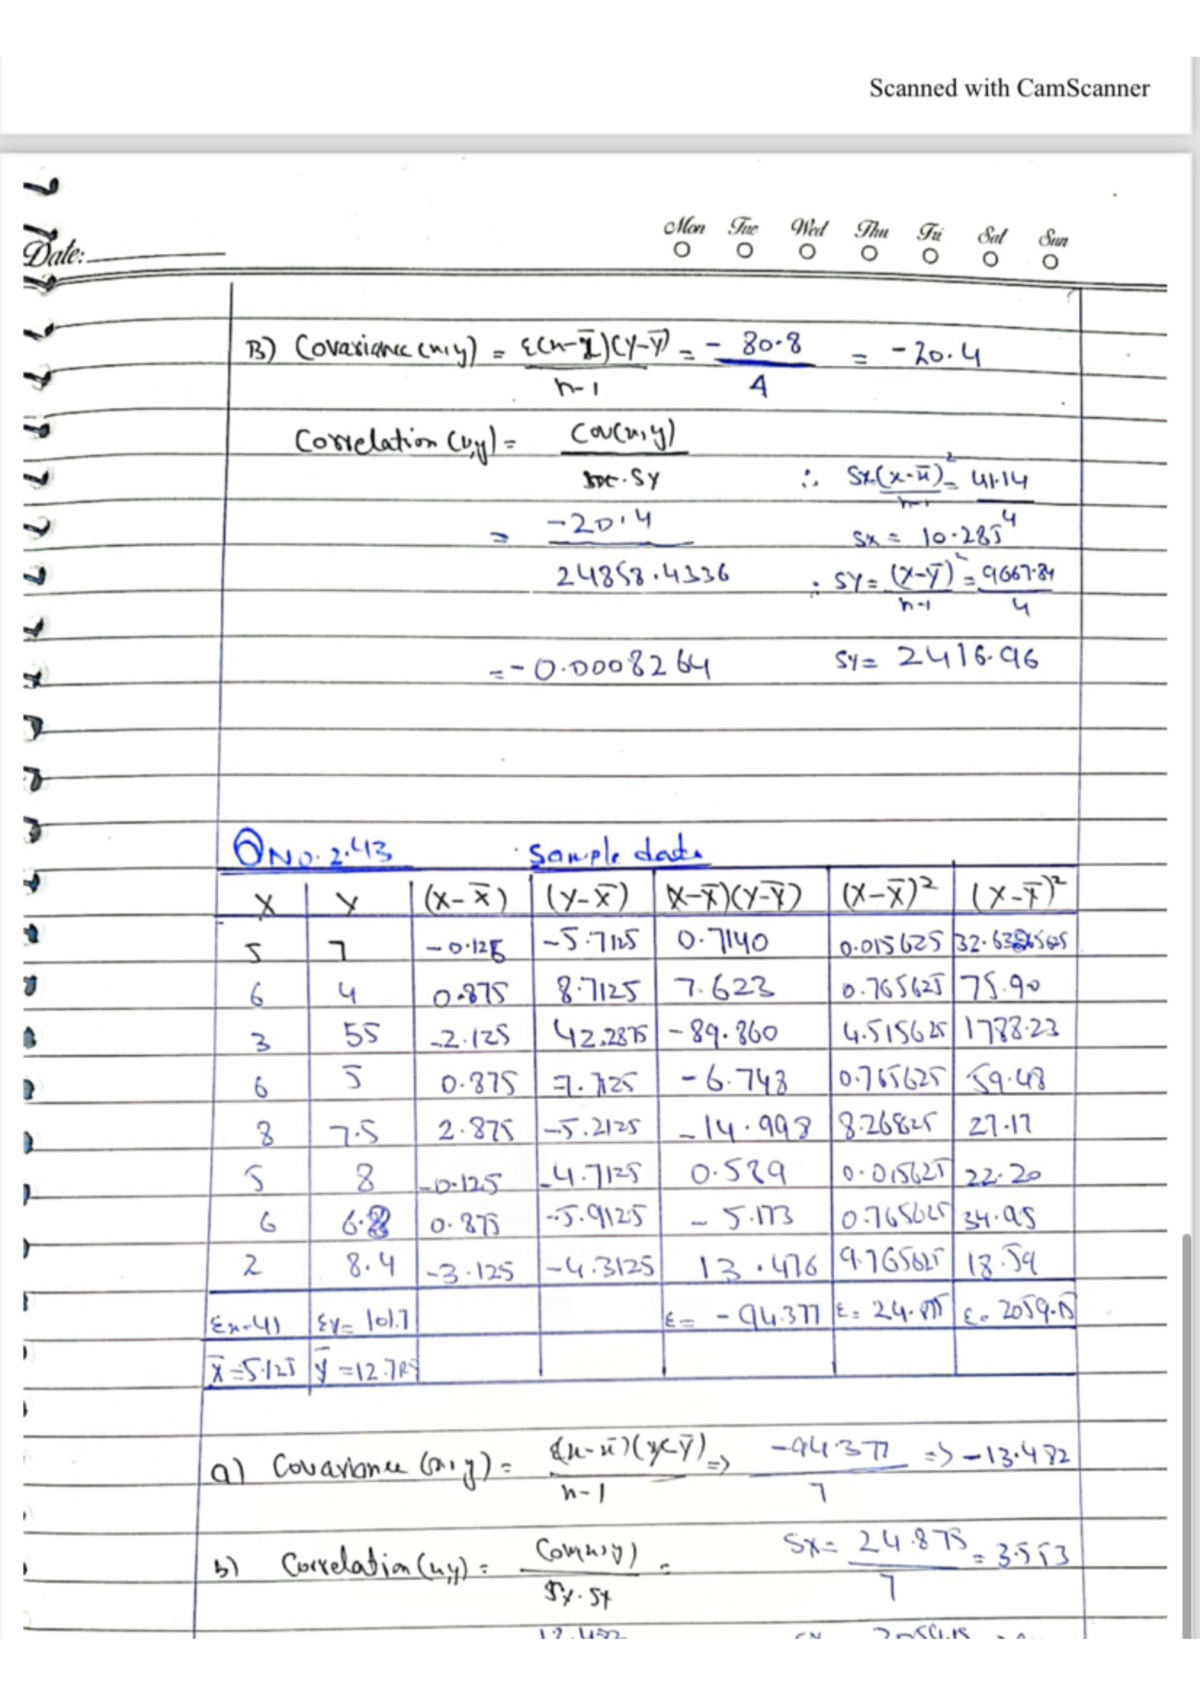 Scanned with CamScanner
Mon Tue Wed Thu Fri Sat Sun
Date:
B) Covariance (x,y) = Σ(x-x̄)(y-ȳ) / n-1 = - 80.8 / 4 = -20.4
Correlation (x,y) = Cov(x,y) / Sx.Sy
∴ Sx=(x-x̄)² / n-1 = 41.14 / 4
= -20.4 / 24858.4336
Sx = 10.285
∴ SY = (x-ȳ)² / n-1 = 9667.84 / 4
= -0.0008264
SY = 2416.96
Q No. 2.43 Sample data
X Y (x-x̄) (y-x̄) (x-x̄)(y-ȳ) (x-x̄)² (x-ȳ)²
5 7 -0.125 -5.7125 0.7140 0.015625
6 4 0.875 8.7125 7.623 0.765625 75.90
3 55 -2.125 42.2875 -89.860 4.515625 1788.23
6 5 0.875 -7.7125 -6.748 0.765625 59.48
8 7.5 2.875 -5.2125 -14.998 8.26825 27.17
5 8 -0.125 -4.7125 0.589 0.015625 22.20
6 6.8 0.875 -5.9125 -5.173 0.765625 34.95
2 8.4 -3.125 -4.3125 13.476 9.765625 18.59
Σx=41 Σy= 101.7 Σ= -94.377 Σ= 24.875 Σ= 2059.15
x̄=5.125 ȳ=12.7125
a) Covariance (x,y) = Σ(x-x̄)(y-ȳ) / n-1 => -94.377 / 7 => -13.482
b) Correlation (x,y) = Cov(x,y) / Sx.Sy = Sx = 24.875 / 7 = 3.553